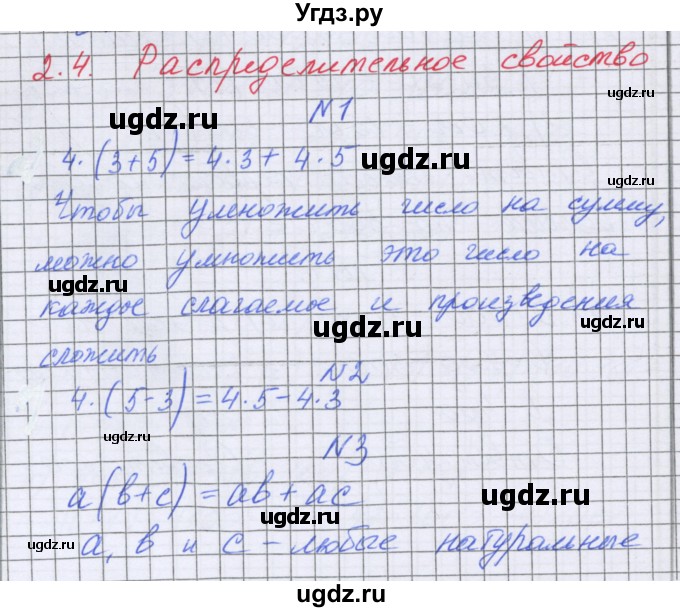 Угдз.ру
2.4. Распределительное свойство
ugdz.ru
ugdz.ru
N1
4·(3+5)=4·3+4·5 ugdz.ru
Чтобы умножить число на сумму,
можно умножить это число на
ugdz.ru
каждое слагаемое и произведения
ugdz.ru
ugdz.ru
сложить
N2
4·(5-3)=4·5-4·3
ugdz.ru
N3
a(b+c)=ab+ac
ugdz.ru
ugdz.ru
ugdz.ru
a, b и c - любые натуральные
ugdz.ru